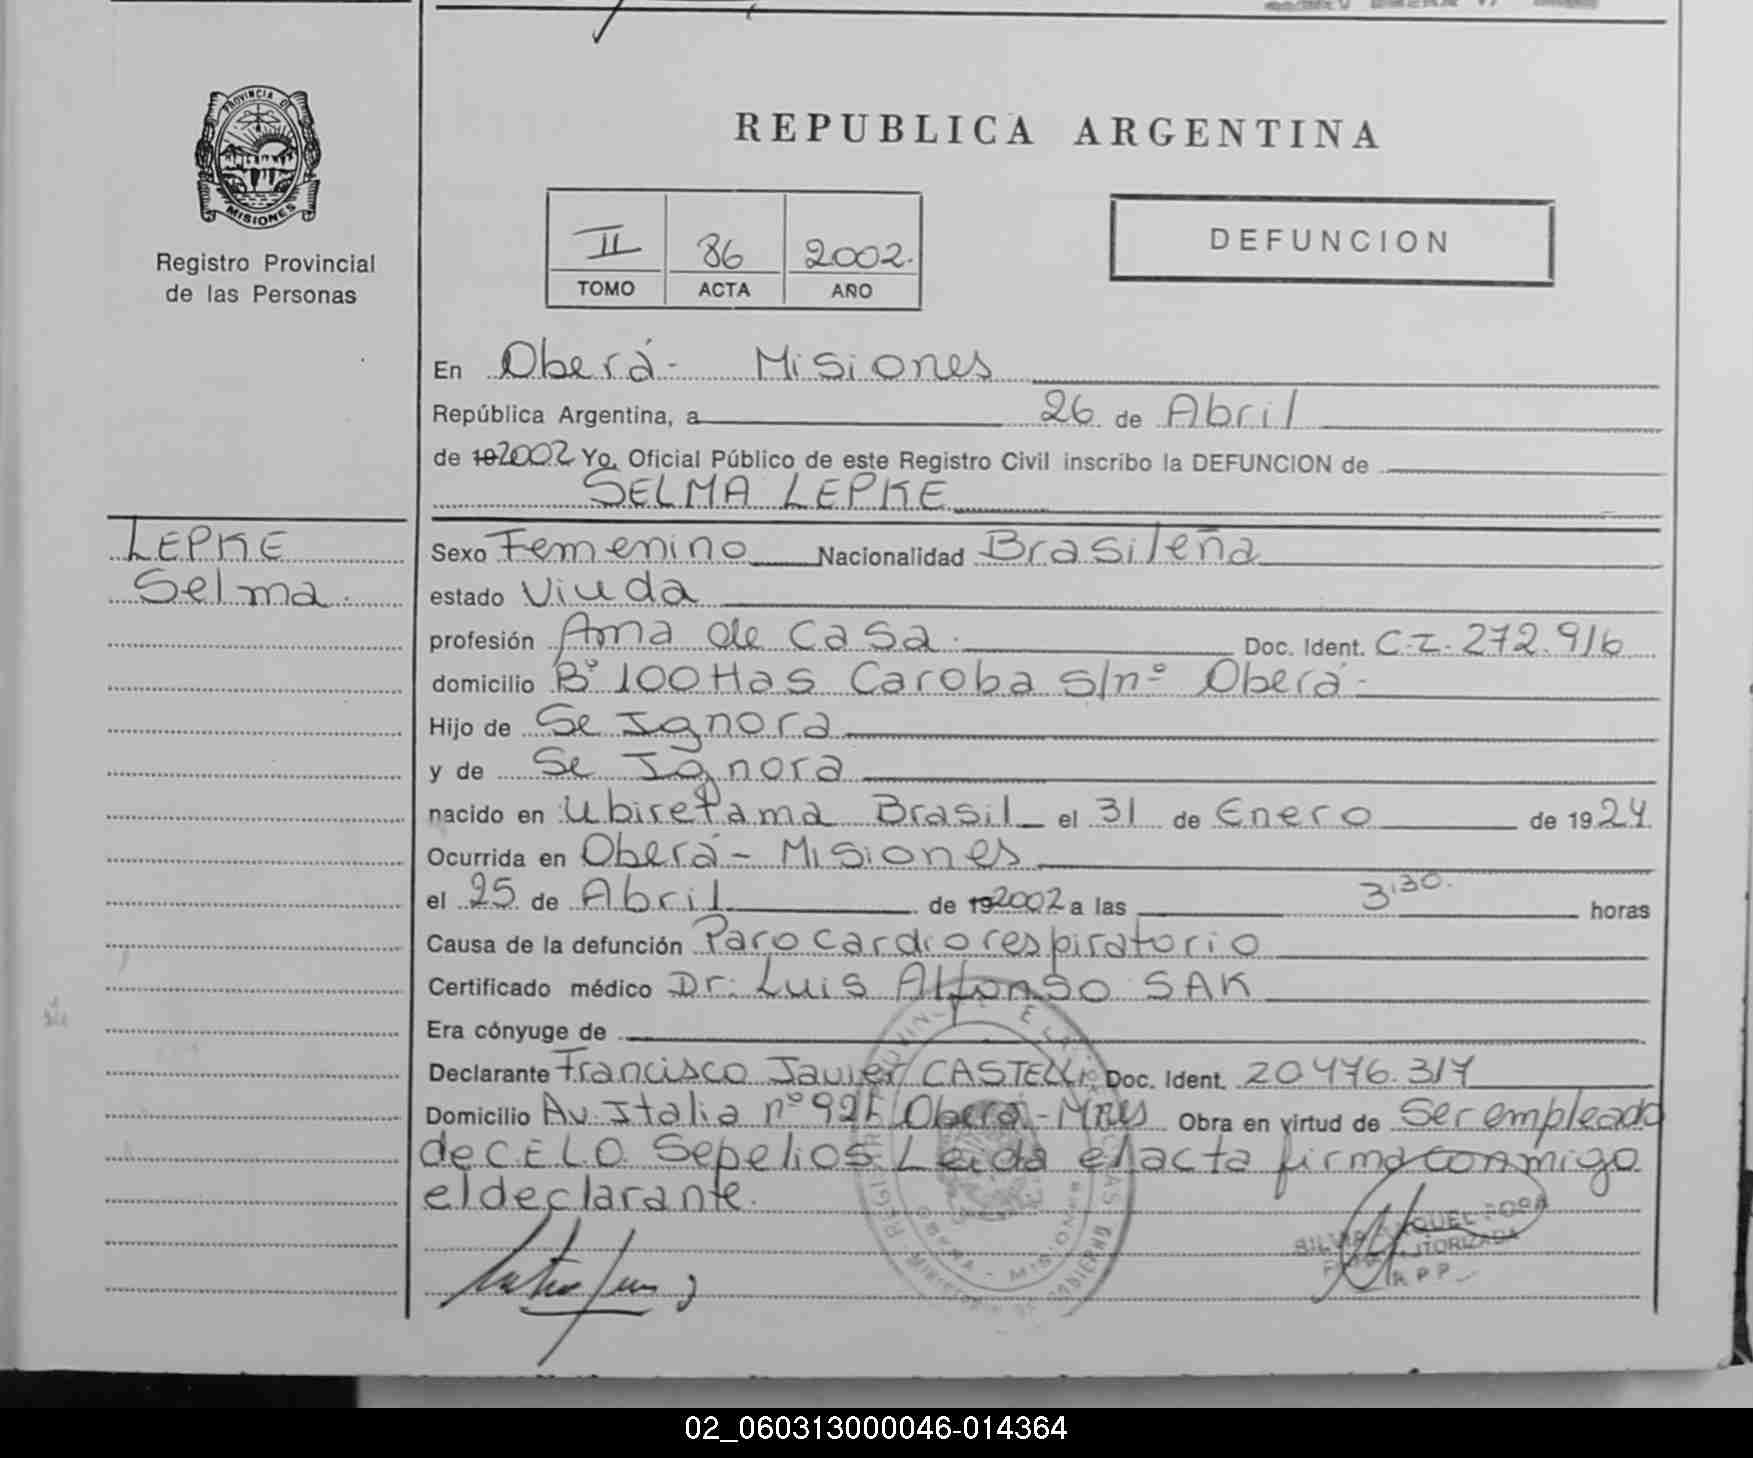 REPUBLICA ARGENTINA
PROVINCIA DE
MISIONES
Registro Provincial
de las Personas
II 86 2002.
TOMO ACTA AÑO
DEFUNCION
En Oberá - Misiones
República Argentina, a 26 de Abril
de 19 2002 Yo, Oficial Público de este Registro Civil inscribo la DEFUNCION de
SELMA LEPKE
LEPKE
Selma.
Sexo Femenino Nacionalidad Brasileña
estado Viuda
profesión Ama de casa. Doc. Ident. C.I. 272.916
domicilio Bº 100 Has Caroba s/nº Oberá -
Hijo de Se Ignora
y de Se Ignora
nacido en Ubiretama Brasil el 31 de Enero de 1924
Ocurrida en Oberá - Misiones
el 25 de Abril de 19 2002 a las 3:30. horas
Causa de la defunción Paro cardiorespiratorio
Certificado médico Dr. Luis Alfonso SAK
Era cónyuge de
Declarante Francisco Javier CASTELLI Doc. Ident. 20.476.317
Domicilio Av. Italia nº 921 Oberá - Mnes Obra en virtud de Ser empleado
de C.E.L.O Sepelios. Leida el acta firma conmigo
el declarante.
OBERA - MISIONES
MINISTERIO DE GOBIERNO
02_060313000046-014364